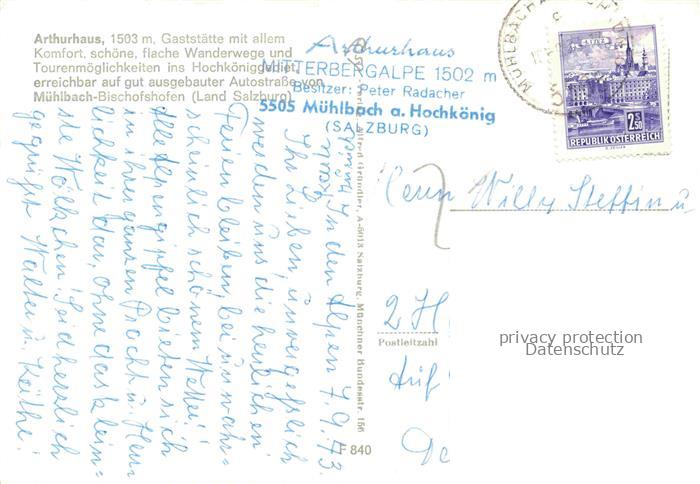 Arthurhaus, 1503 m, Gaststätte mit allem
Komfort, schöne, flache Wanderwege und
Tourenmöglichkeiten ins Hochköniggebiet,
erreichbar auf gut ausgebauter Autostraße von
Mühlbach-Bischofshofen (Land Salzburg)
Arthurhaus
MITTERBERGALPE 1502 m
Besitzer: Peter Radacher
5505 Mühlbach a. Hochkönig
(SALZBURG)
MÜHLBACH
LINZ
2.50
REPUBLIK ÖSTERREICH
In den Alpen 7.9.73.
Ihr Lieben, unvergeßlich
werden uns die herrlichen
Ferien bleiben, bei unwahr=
scheinlich schönem Wetter!
Alle Alpengipfel bieten sich
in ihrer ganzen Pracht u. Herr=
lichkeit dar, ohne das klein=
ste Wölkchen! Seid herzlich
gegrüßt Walter u. Käthe!
Alfred Gründler, A-5013 Salzburg, Münchner Bundesstr. 156
F 840
Herrn Willy Steffin u
2 H
Postleitzahl
privacy protection
Datenschutz